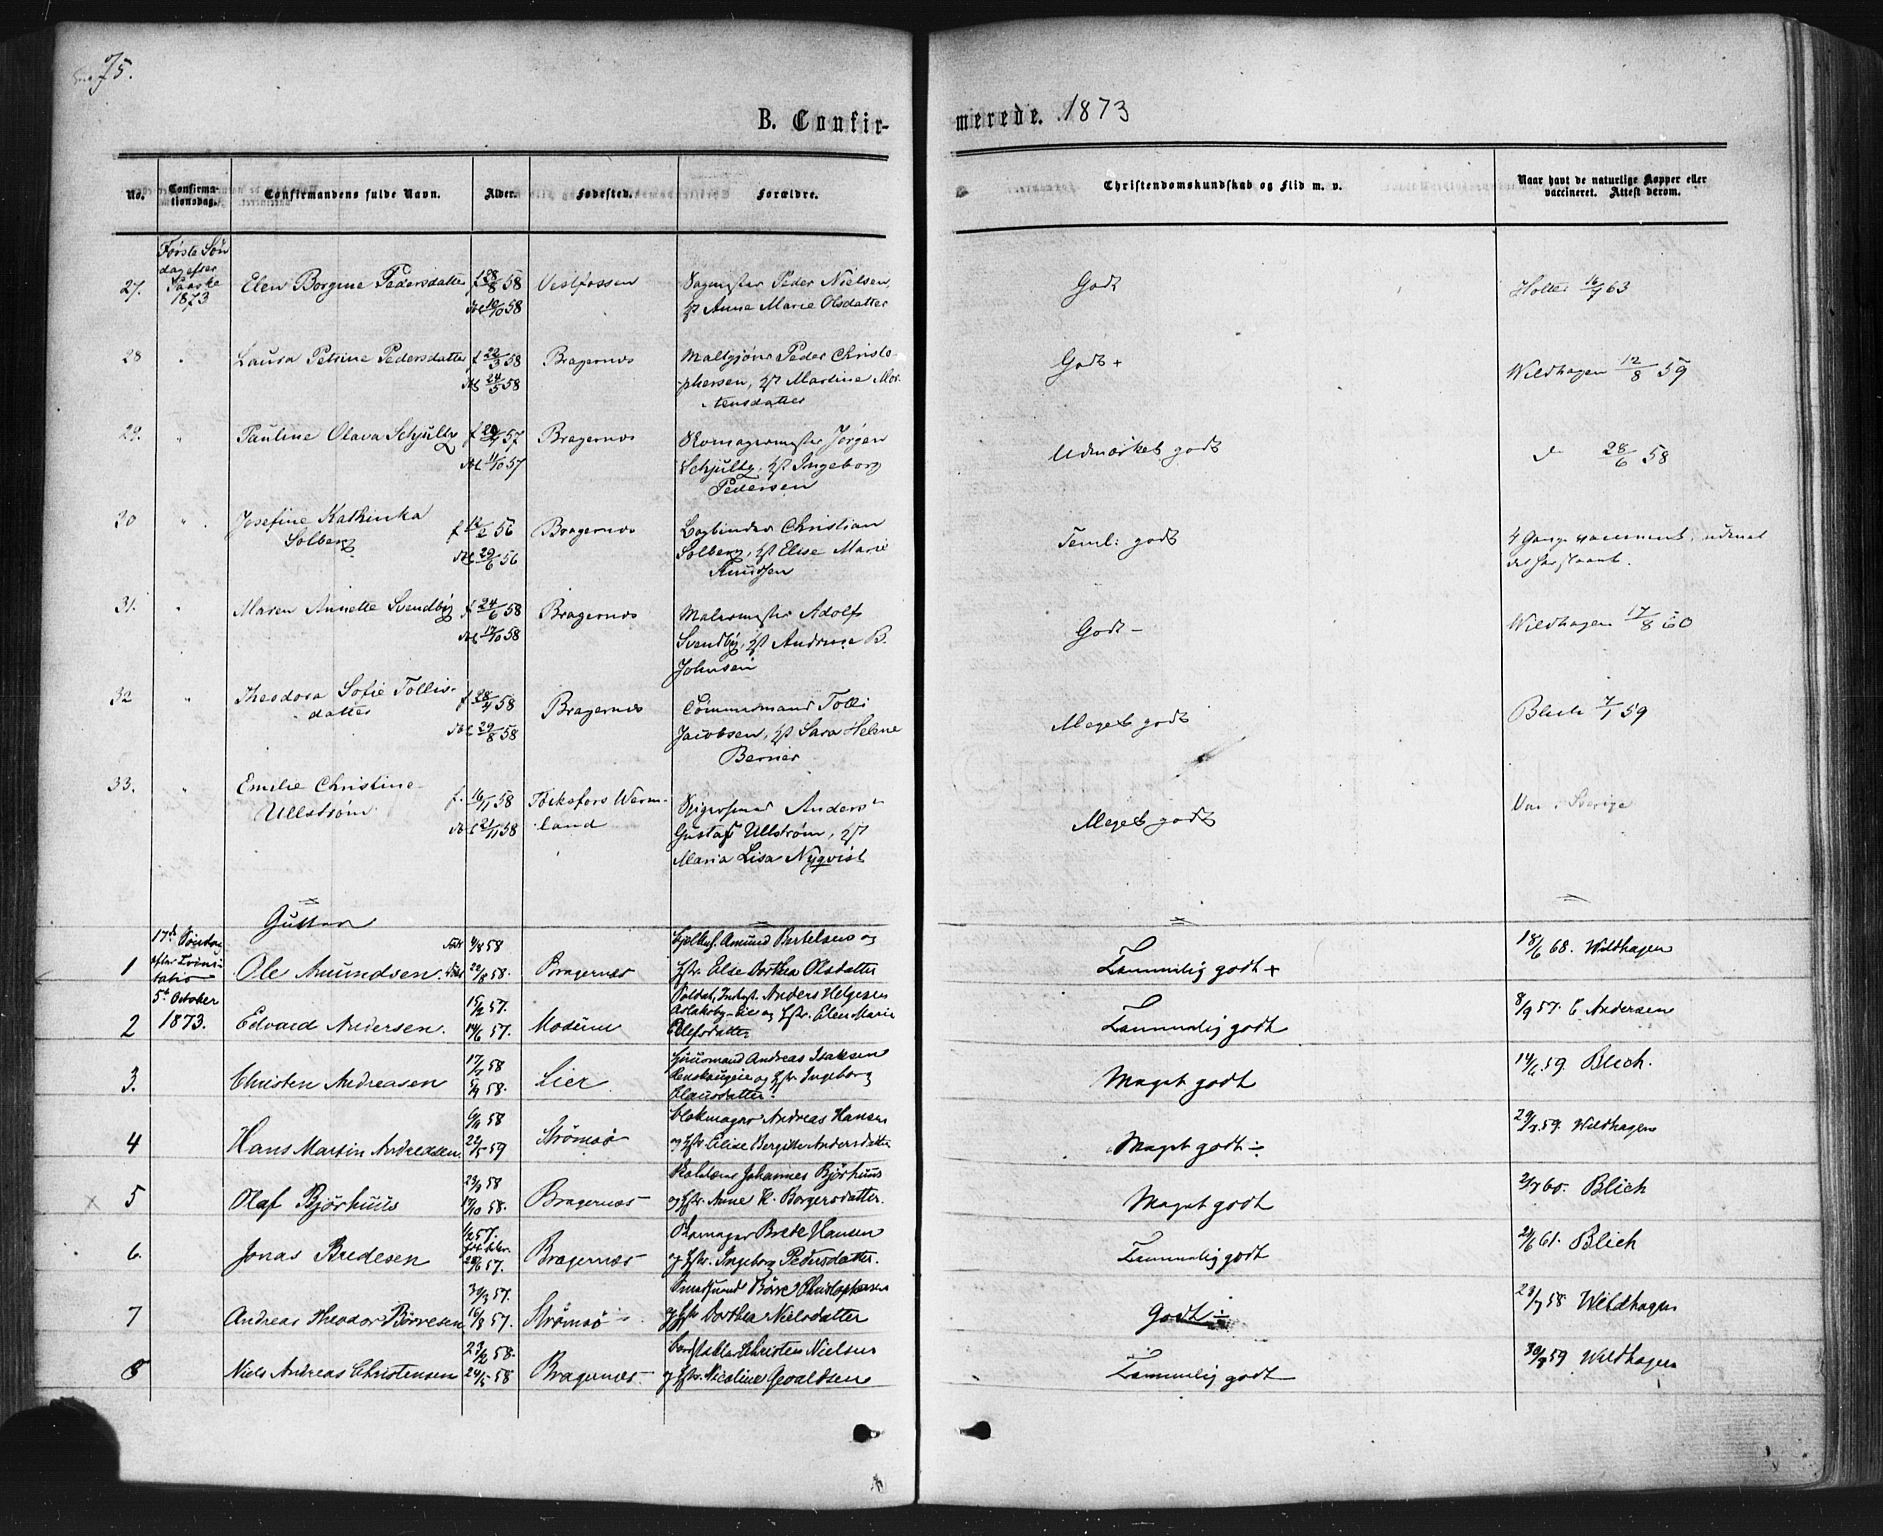 75.
B. Confir-
merede. 1873
No.
Confirma-
tionsdag.
Confirmandens fulde Navn.
Alder.
Fødested.
Forældre.
Christendomskundskab og Flid m. v.
Naar havt de naturlige Kopper eller
vaccineret. Attest derom.
Første Søn
dag efter
Paaske
1873
27. Elen Borgine Pedersdatter f 28/8 58 Vestfossen
Peder Nielsen,
Anne Marie Olsdatter
Godt
Holter 16/7 63
28 " Laura Petrine Pedersdatter f 22/3 58 Bragernæs
24/5 58
Maltgjører Peder Christo-
phersen, Hst Martine Mor-
tensdatter
Godt +
Wildhagen 12/8 59
29. " Pauline Olava Schjultz 57 Bragernæs
11/10 57
Skomagermester Jørgen
Schjultz, Hst Ingeborg
Pedersen
Udmærket godt
28/6 58
30 " Josefine Kathinka
Solberg
f 12/2 56 Bragernæs
29/6 56
Bogbinder Christian
Solberg, Hst Elise Marie
Knudsen
Teml: godt
4 Gange vaccineret,
31. " Maren Annette Svendby f 24/6 58 Bragernæs
17/10 58
Malermester Adolf
Svendby, Hst Andrine B.
Johnsen
Godt -
Wildhagen 17/8 60
32 " Theodora Sofie Tollis-
datter
58 Bragernæs
29/8 58
Tolli
Jacobsen, Hst Sara Helene
Berner
Meget godt
Blich 7/1 59
33. " Emilie Christine
Ullstrøm
f. 16/11 58 Töcksfors Werm-
21/11 58 land
Anders
Gustaf Ullström, Hst
Maria Lisa Nyqvist
Meget godt
Vac. i Sverige
Gutter
17d Søndag
efter Trini-
tatis
5t October
1873.
1 Ole Amundsen. 58
22/8 58. Bragernæs
Amund Bertelsen og
Hstr. Else Dorthea Olsdatter
Temmelig godt +
18/6 68. Wildhagen
2 Edvard Andersen. 15/2 57.
14/6 57. Modum
Soldat, Indst. Anders Helgesen
og Hstr. Elen Marie
Temmelig godt
8/9 57. C Andersen
3. Christen Andreasen 58
58. Lier
Huusmand Andreas Isaksen
og Hstr Ingeborg
Olausdatter
Meget godt
14/6 59. Blich.
4 Hans Martin Andreasen. 58
59 Strømsø
Blokmager Andreas Hansen
og Hstr Elise Bergitte Andersdatter
Meget godt ÷
59. Wildhagen
5 Olaf Bjørhuus 58
17/10 58. Bragernæs
Johannes Bjørhuus
og Hstr. Anne K. Borgersdatter.
Meget godt
60. Blich
6. Jonas Bredesen 57.
57. Bragernæs
Skomager Brede Hansen
og Hstr. Ingeborg Pedersdatter.
Temmelig godt
61. Blich
7 Andreas Theodor Børresen 57.
57. Strømsø
Børre Christophersen
og Hstr Dorthea Nielsdatter
Godt ÷
58 Wildhagen
8 Niels Andreas Christensen 23/2 58.
58 Bragernæs
Christen Nielsen
og Hstr. Nicoline Gevaldsen
Temmelig godt
59 Wildhagen